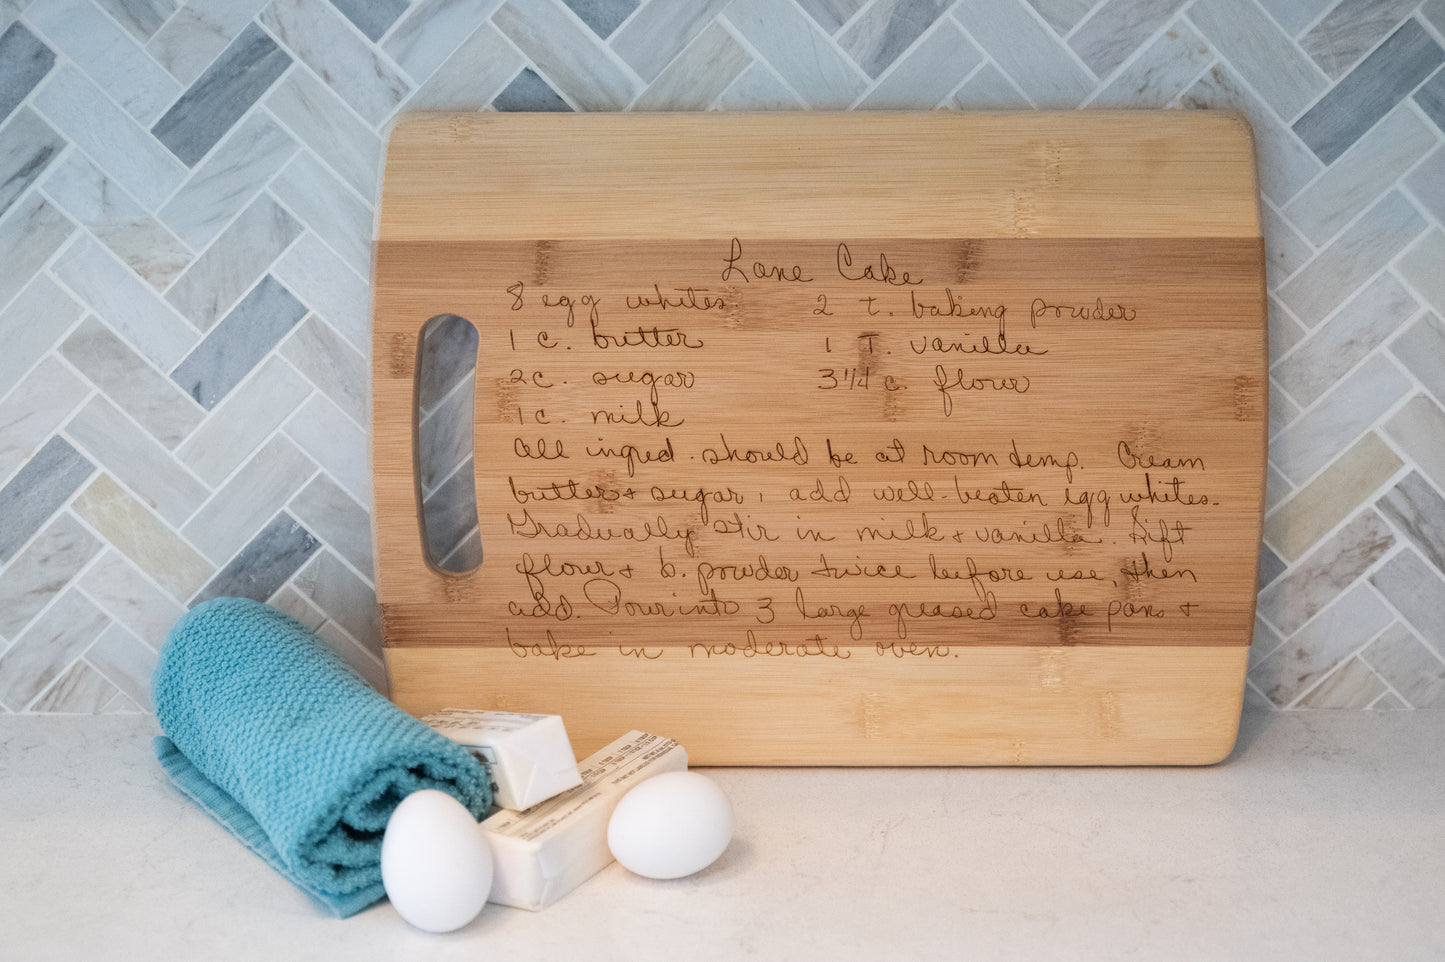 Lane Cake
8 egg whites 2 t. baking powder
1 c. butter 1 T. vanilla
2 c. sugar 3 1/4 c. flour
1 c. milk
All ingred. should be at room temp. Cream
butter + sugar, add well-beaten egg whites.
Gradually stir in milk + vanilla. Sift
flour + b. powder twice before use, then
add. Pour into 3 large greased cake pans +
bake in moderate oven.